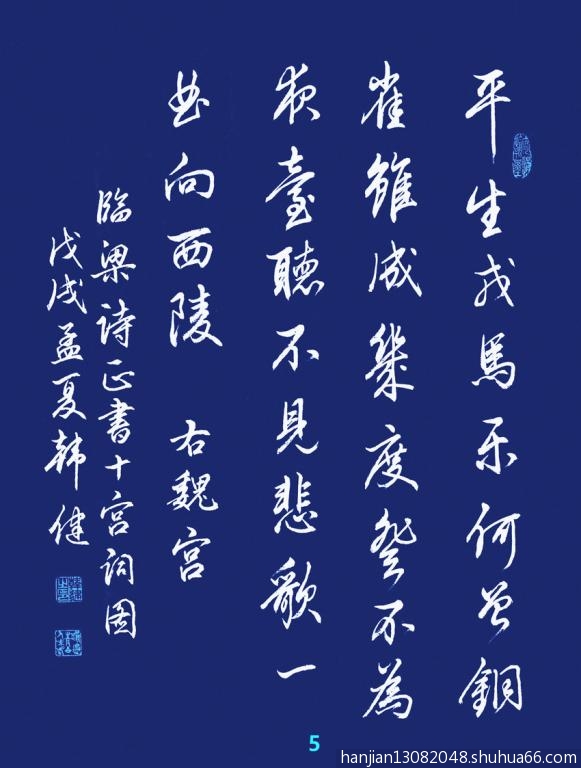 平生戎馬乐何曾銅
雀雖成幾度登不為
夜臺聽不見悲歌一
曲向西陵 右魏宫
临梁诗正書十宫词图
戊戌孟夏韩健
5
hanjian13082048.shuhua66.com